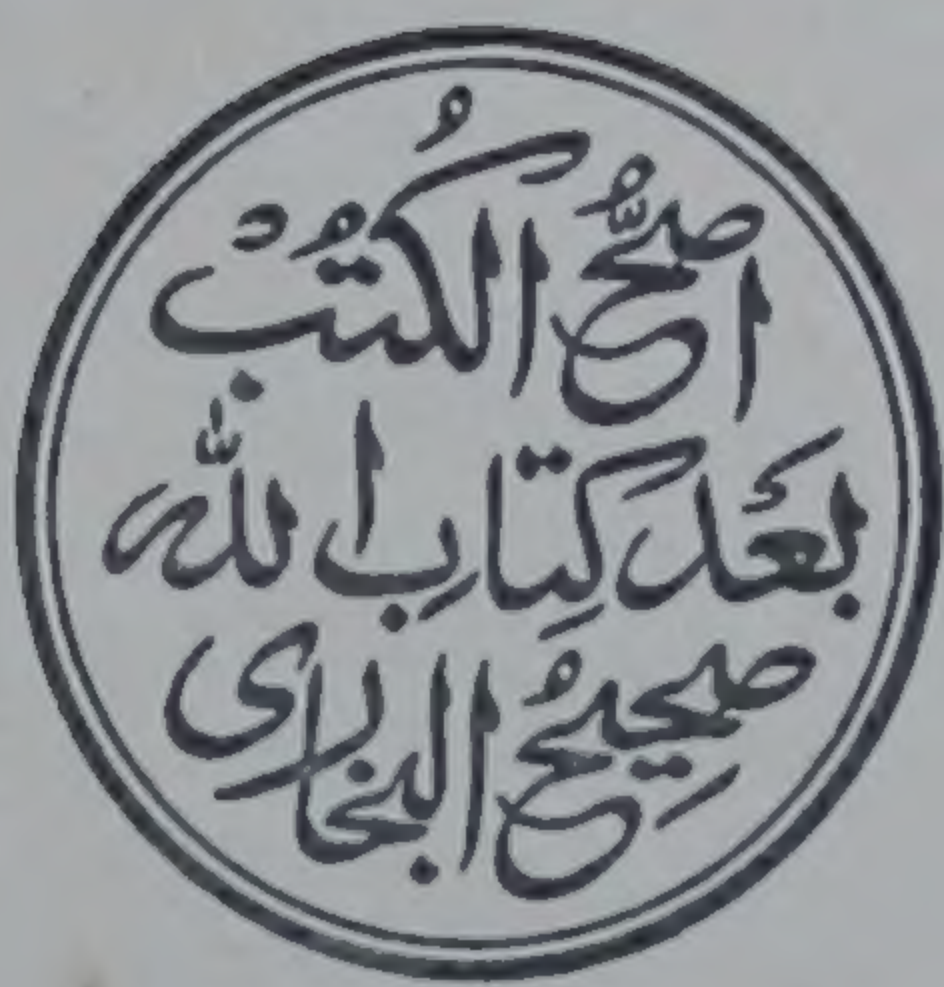 اصَحُّ الكُتُبْ
بَعَدَ كِتَابِ اللّٰه
صَحِيحُ البخاری